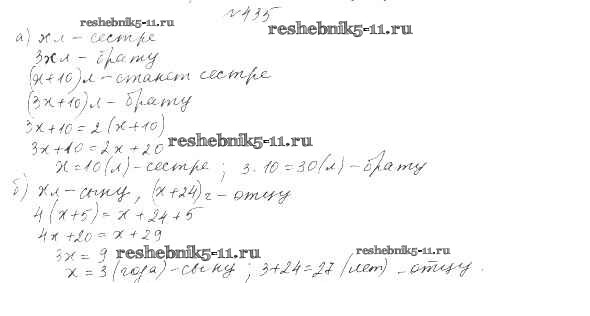 №435
reshebnik5-11.ru
reshebnik5-11.ru
а) х л - сестре
3х л - брату
(х+10) л - станет сестре
(3х+10) л - брату
3х+10 = 2(х+10)
reshebnik5-11.ru
3х+10 = 2х+20
х = 10(л) - сестре ; 3·10=30(л) - брату
б) х л - сыну, (х+24) г - отцу
4(х+5) = х+24+5
4х+20 = х+29
3х = 9
reshebnik5-11.ru
reshebnik5-11.ru
х = 3(года) - сыну ; 3+24=27 (лет) - отцу.